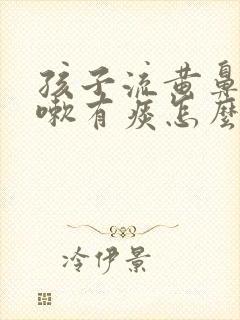 孩子流黄鼻
嗽有痰怎麼
冷伊景